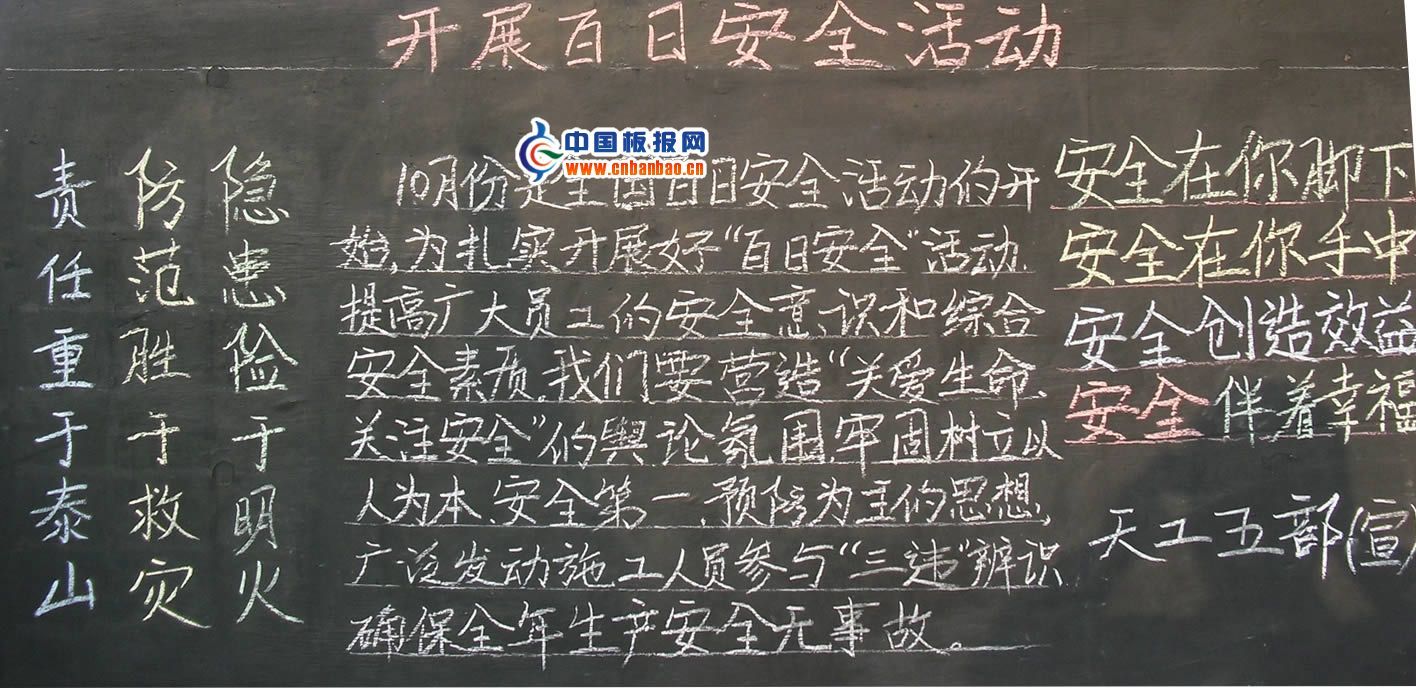 开展百日安全活动
中国板报网
www.cnbanbao.cn
隐患险于明火
防范胜于救灾
责任重于泰山
10月份是全国百日安全活动的开
始,为扎实开展好“百日安全”活动、
提高广大员工的安全意识和综合
安全素质,我们要营造“关爱生命、
关注安全”的舆论氛围,牢固树立以
人为本、安全第一、预防为主的思想,
广泛发动施工人员参与“三违”辨识
确保全年生产安全无事故。
安全在你脚下
安全在你手中
安全创造效益
安全伴着幸福
天工五部(宣)